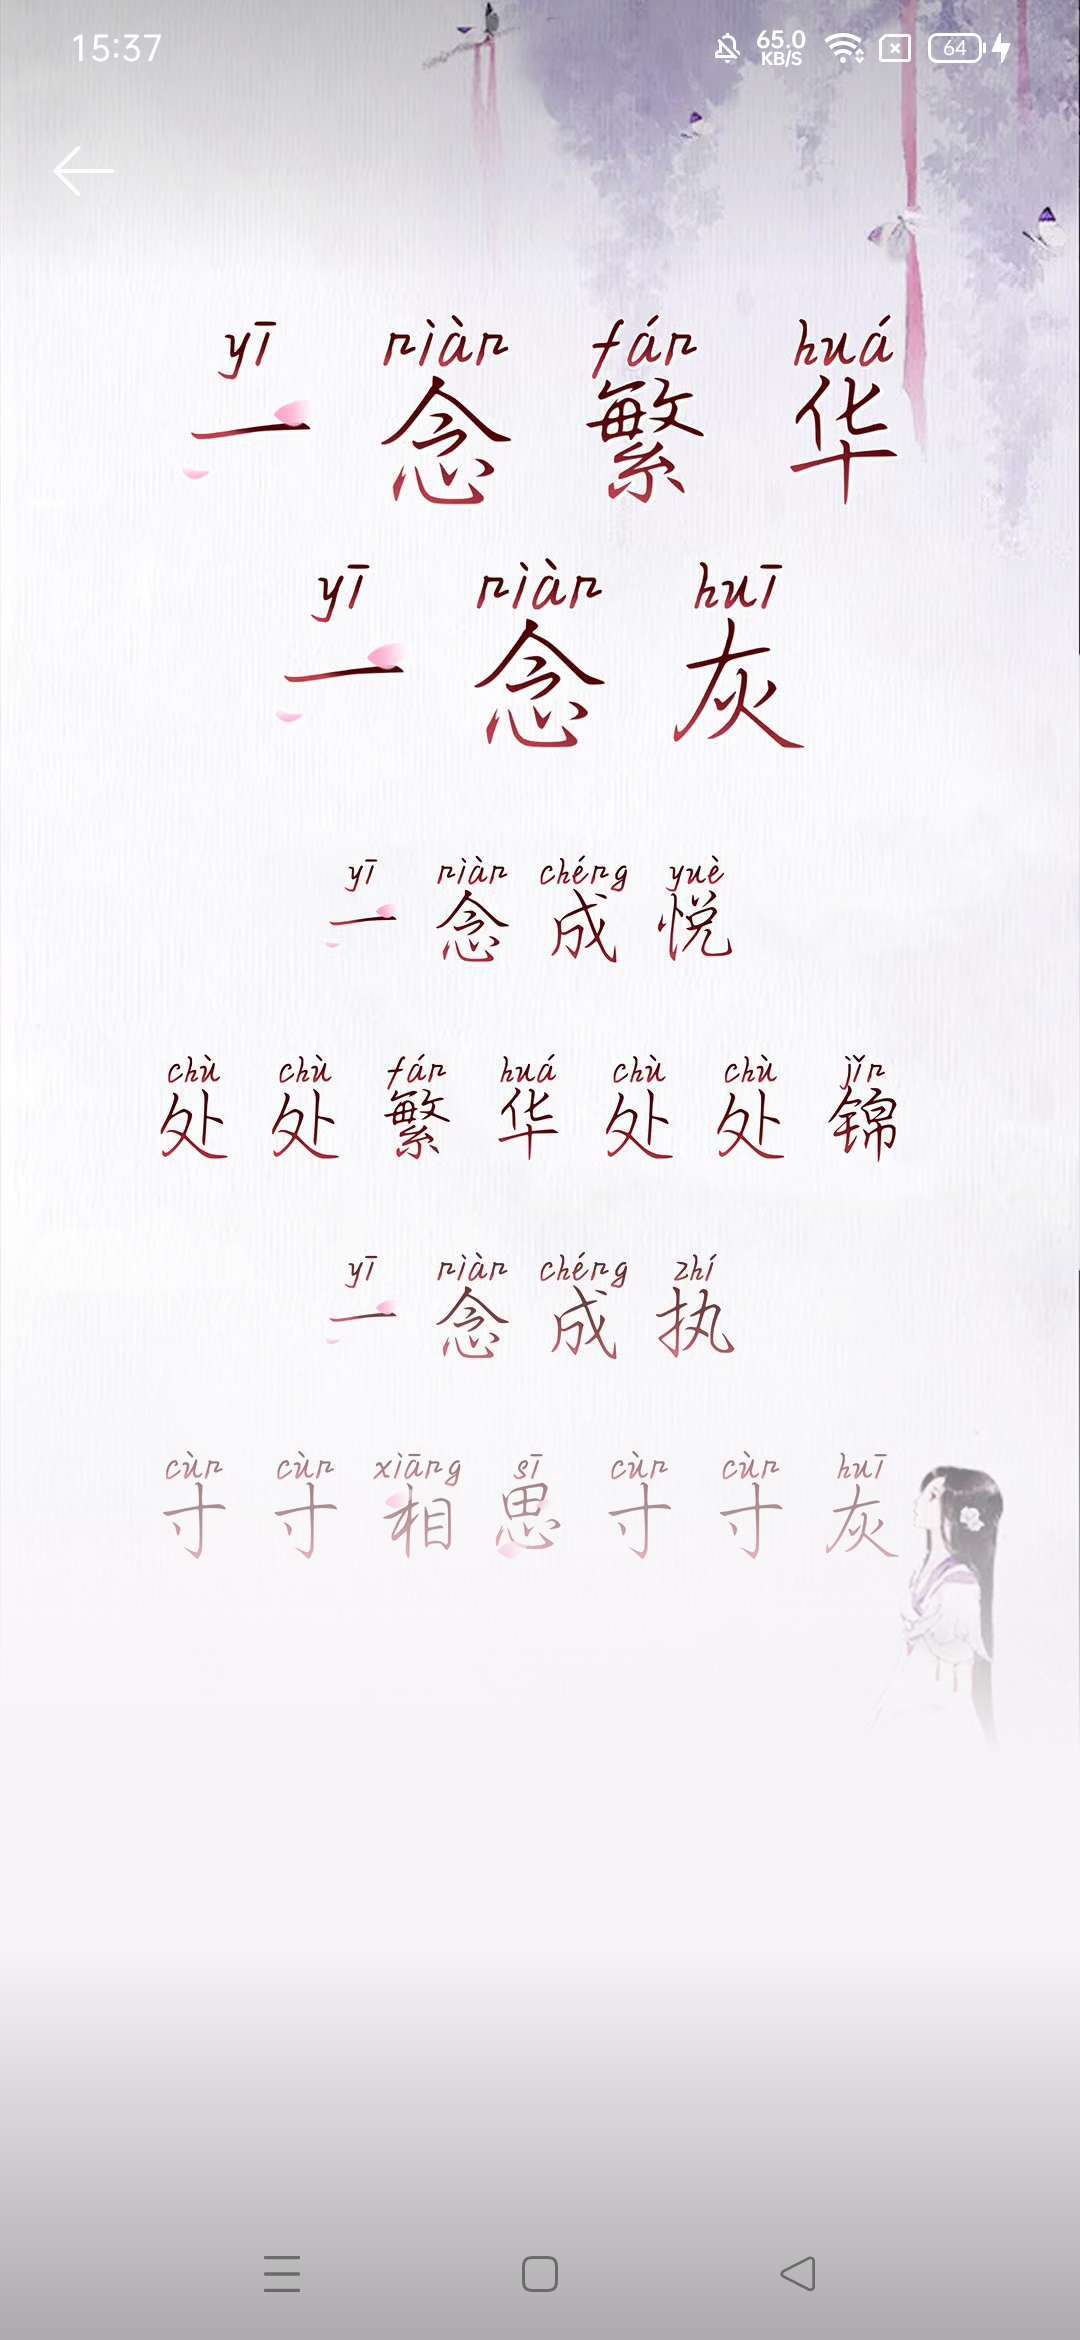 15:37 65.0 KB/S 64
yī niàn fán huá
一念繁华
yī niàn huī
一念灰
yī niàn chéng yuè
一念成悦
chù chù fán huá chù chù jǐn
处处繁华处处锦
yī niàn chéng zhí
一念成执
cùn cùn xiāng sī cùn cùn huī
寸寸相思寸寸灰